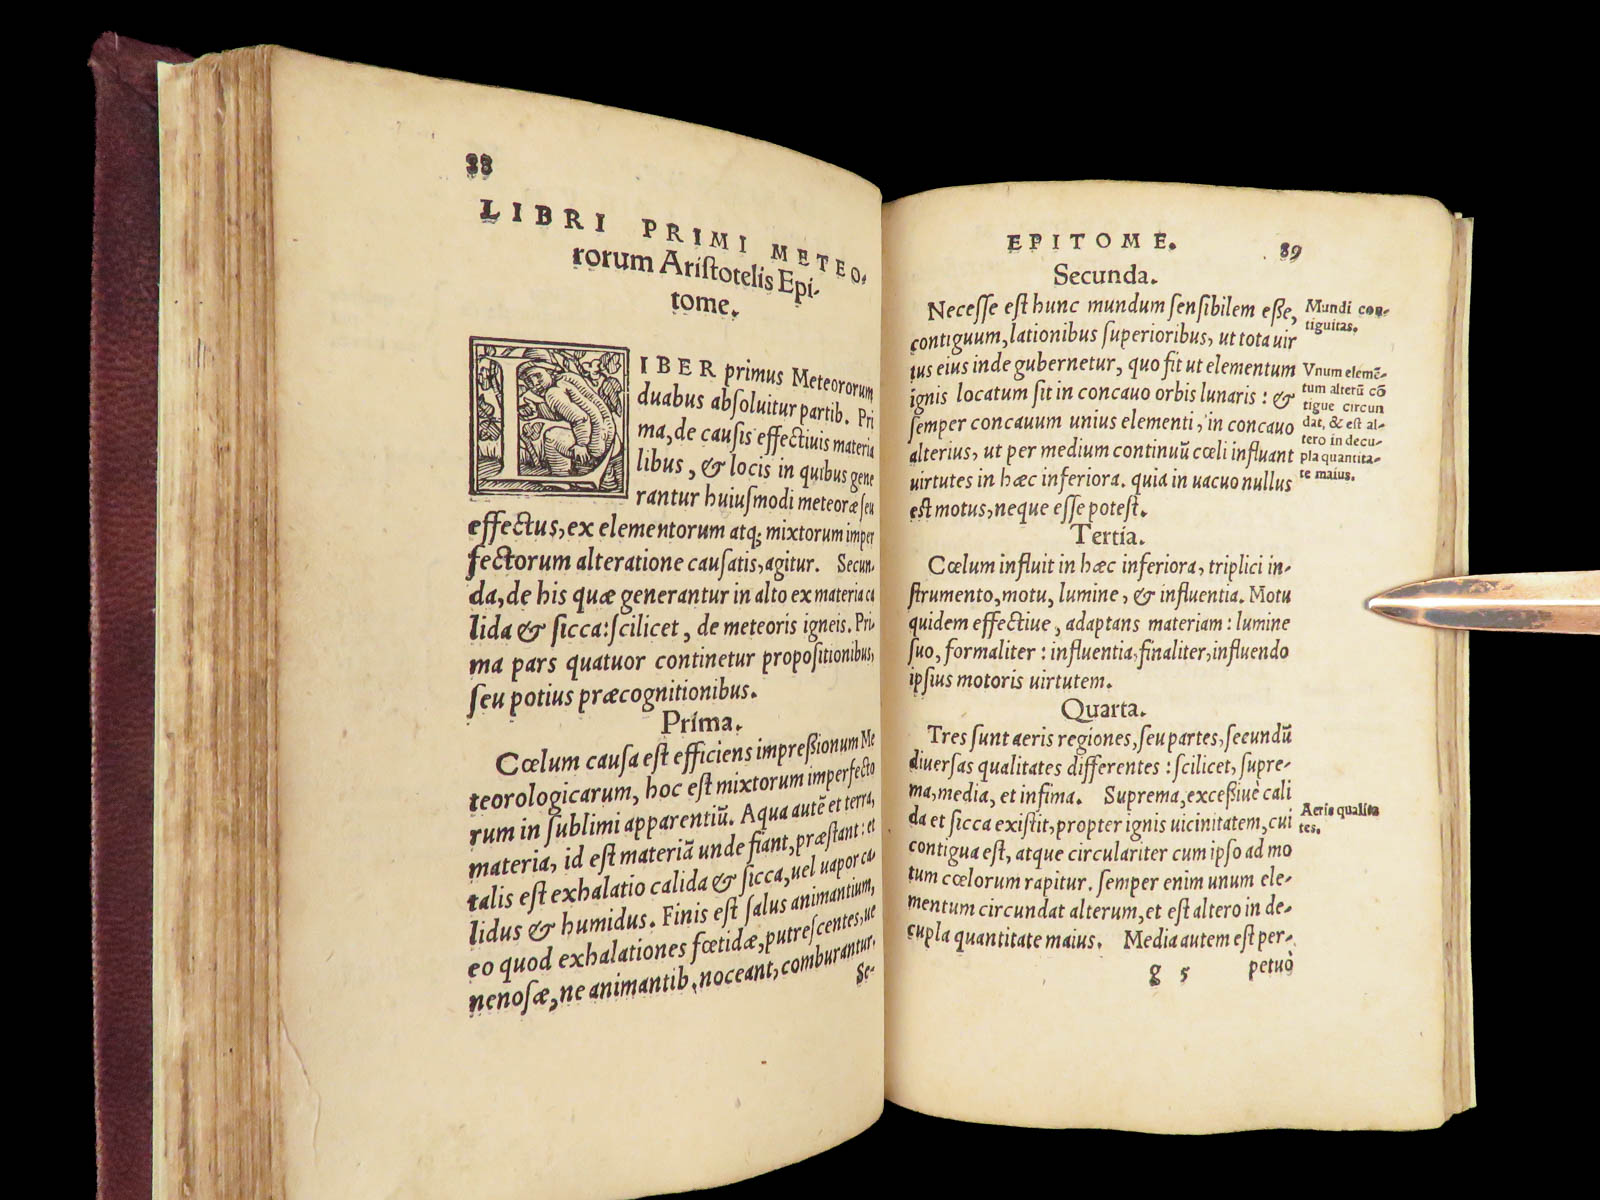 88
LIBRI PRIMI METEO-
rorum Ariſtotelis Epi-
tome.
LIBER primus Meteororum
duabus abſoluitur partib. Pri
ma, de cauſis effectiuis materia
libus, & locis in quibus gene
rantur huiuſmodi meteoræ ſeu
effectus, ex elementorum atq; mixtorum imper
fectorum alteratione cauſatis, agitur. Secun-
da, de his quæ generantur in alto ex materia ca
lida & ſicca: ſcilicet, de meteoris igneis. Pri-
ma pars quatuor continetur propoſitionibus,
ſeu potius præcognitionibus.
Prima.
Cœlum cauſa eſt efficiens impreſſionum Me
teorologicarum, hoc eſt mixtorum imperfecto
rum in ſublimi apparentiũ. Aqua autẽ et terra,
materia, id eſt materiã unde fiant, præſtant: et
talis eſt exhalatio calida & ſicca, uel uapor ca-
lidus & humidus. Finis eſt ſalus animantium,
eo quod exhalationes fœtidæ, putreſcentes, ue
nenoſæ, ne animantib. noceant, comburantur.
Se-
EPITOME. 89
Secunda.
Neceſſe eſt hunc mundum ſenſibilem eſſe,
contiguum, lationibus ſuperioribus, ut tota uir
tus eius inde gubernetur, quo fit ut elementum
ignis locatum ſit in concauo orbis lunaris: &
ſemper concauum unius elementi, in concauo
alterius, ut per medium continuũ cœli influant
uirtutes in hæc inferiora. quia in uacuo nullus
eſt motus, neque eſſe poteſt.
Mundi con-
tiguitas.
Vnum elemẽ-
tum alterũ cõ
tigue circun
dat, & eſt al-
tero in decu-
pla quantita-
te maius.
Tertia.
Cœlum influit in hæc inferiora, triplici in-
ſtrumento, motu, lumine, & influentia. Motu
quidem effectiue, adaptans materiam: lumine
ſuo, formaliter: influentia, finaliter, influendo
ipſius motoris uirtutem.
Quarta.
Tres ſunt aeris regiones, ſeu partes, ſecundũ
diuerſas qualitates differentes: ſcilicet, ſupre-
ma, media, et infima. Suprema, exceſſiuè cali
da et ſicca exiſtit, propter ignis uicinitatem, cui
contigua eſt, atque circulariter cum ipſo ad mo
tum cœlorum rapitur. ſemper enim unum ele-
mentum circundat alterum, et eſt altero in de-
cupla quantitate maius. Media autem eſt per-
Aeris qualita
tes.
g 5 petuò